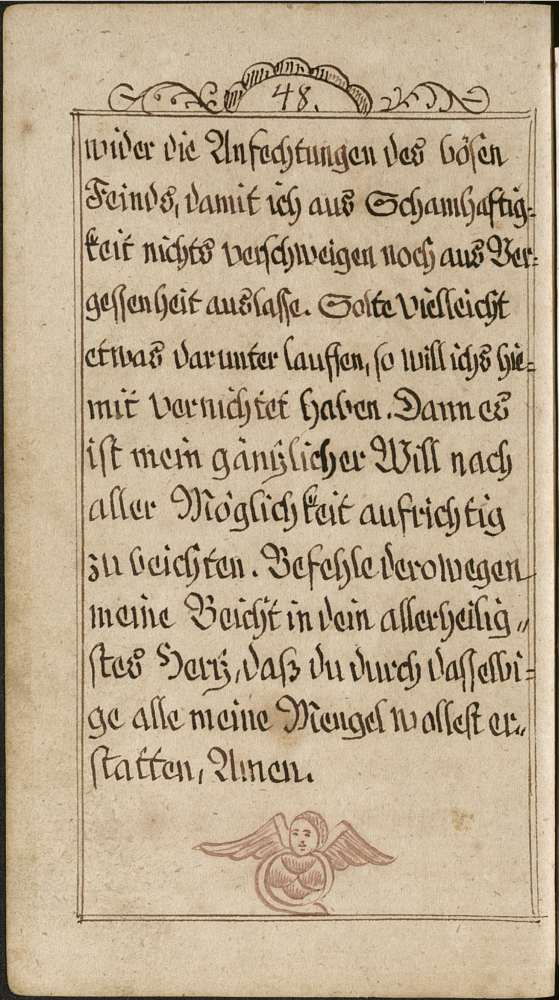 48.
wider die Anfechtungen des bösen
Feinds, damit ich aus Schamhaftig-
keit nichts verschweigen noch aus Ver-
gessenheit auslasse. Solte vielleicht
etwas darunter lauffen, so will ichs hie-
mit vernichtet haben. Dann es
ist mein gäntzlicher Will nach
aller Möglichkeit aufrichtig
zu beichten. Befehle derowegen
meine Beicht in dein allerheilig„
stes Hertz, daß du durch dasselbi-
ge alle meine Mengel wollest er„
statten, Amen.